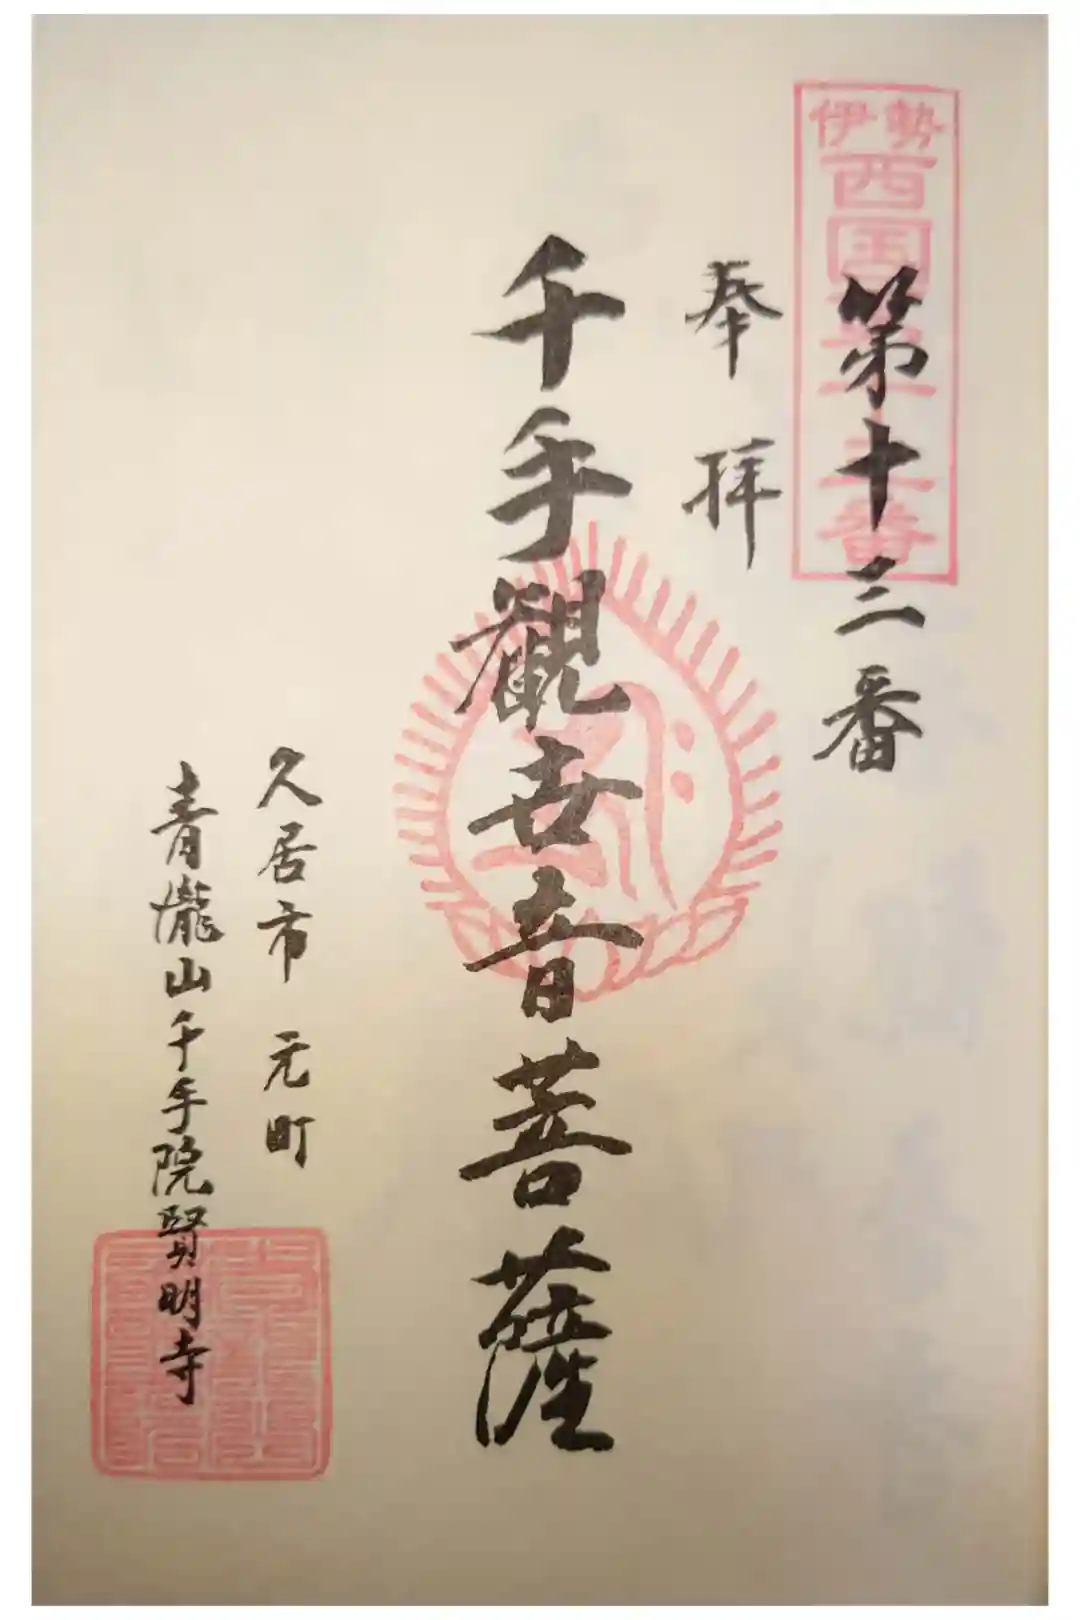 伊勢
西国第十三番
第十三番
奉拝
千手觀世音菩薩
久居市 元町
青瀧山千手院賢明寺